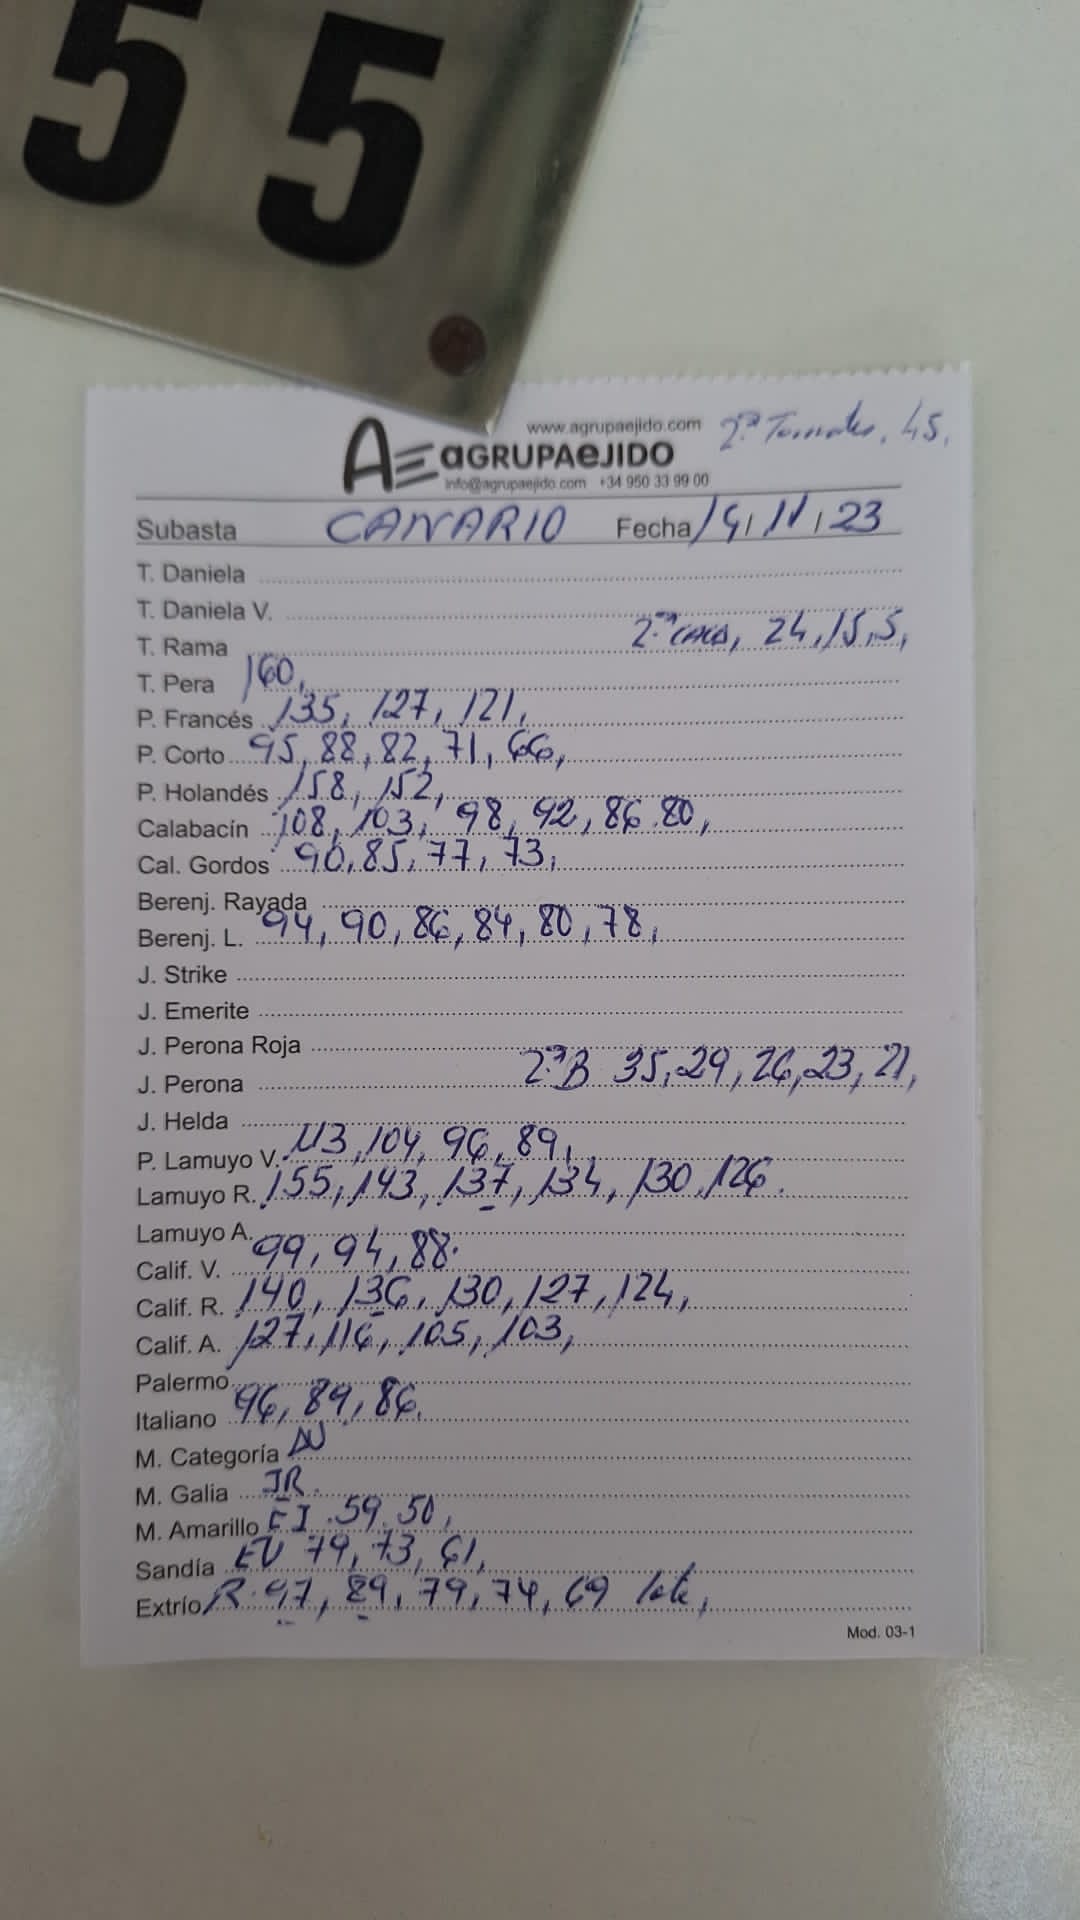 55
www.agrupaejido.com
2ª Tomates, 45,
AE aGRUPAeJIDO
info@agrupaejido.com +34 950 33 99 00
Subasta CANARIO Fecha / 11 / 23
T. Daniela
T. Daniela V.
T. Rama 2ª CACA, 24, 15, 5,
T. Pera 160,
P. Francés 135, 127, 121,
P. Corto 95, 88, 82, 71, 66,
P. Holandés 158, 152,
Calabacín 108, 103, 98, 92, 86, 80,
Cal. Gordos 90, 85, 77, 73,
Berenj. Rayada
Berenj. L. 94, 90, 86, 84, 80, 78,
J. Strike
J. Emerite
J. Perona Roja
J. Perona 2ª B 35, 29, 26, 23, 21,
J. Helda
P. Lamuyo V. 113, 104, 96, 89,
Lamuyo R. 155, 143, 137, 134, 130, 126.
Lamuyo A.
Calif. V. 99, 94, 88.
Calif. R. 140, 136, 130, 127, 124,
Calif. A. 127, 116, 105, 103,
Palermo
Italiano 96, 89, 86.
M. Categoría
M. Galia JR.
M. Amarillo FI 59, 50,
Sandía EV 79, 73, 61,
Extrío R. 97, 89, 79, 74, 69
Mod. 03-1